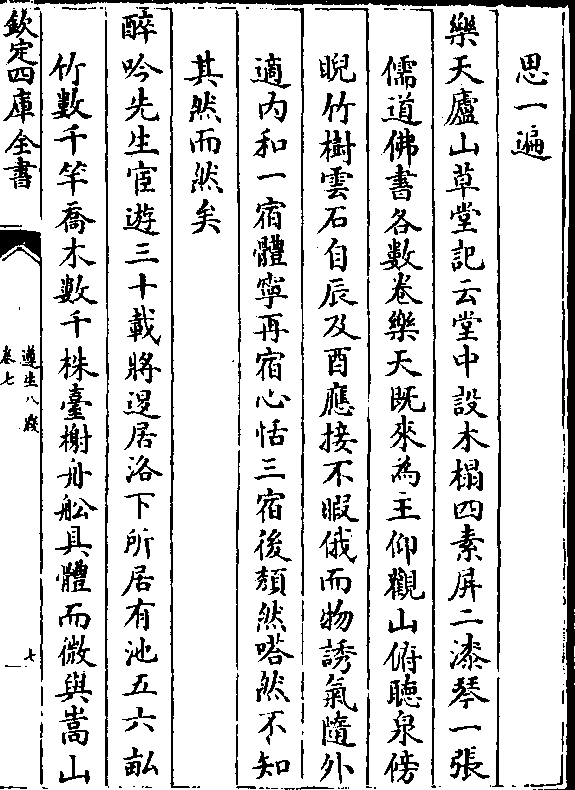 思一遍
樂天廬山草堂記云堂中設木榻四素屏二漆琴一張
儒道佛書各數卷樂天既來為主仰觀山俯聽泉傍
睨竹樹雲石自辰及酉應接不暇俄而物誘氣隨外
適內和一宿體寧再宿心恬三宿後頽然嗒然不知
其然而然矣
醉吟先生宦遊三十載將退居洛下所居有池五六畝
竹數千竿喬木數千株臺榭舟舩具體而微與嵩山
欽定四庫全書
遵生八牋
卷七
七